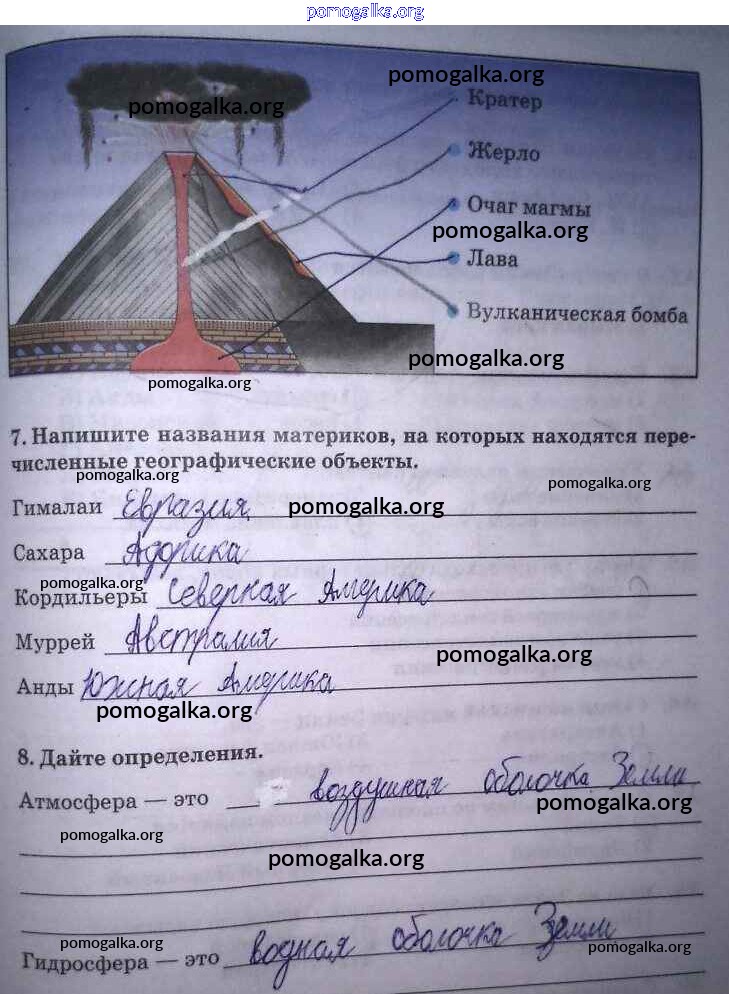 pomogalka.org
pomogalka.org
Кратер
pomogalka.org
Жерло
Очаг магмы
pomogalka.org
Лава
Вулканическая бомба
pomogalka.org
pomogalka.org
7. Напишите названия материков, на которых находятся пере-
численные географические объекты.
pomogalka.org
pomogalka.org
Гималаи Евразия pomogalka.org
Сахара Африка
pomogalka.org
Кордильеры Северная Америка
Муррей Австралия
pomogalka.org
Анды Южная Америка
pomogalka.org
8. Дайте определения.
Атмосфера — это воздушная оболочка Земли
pomogalka.org
pomogalka.org
pomogalka.org
pomogalka.org
Гидросфера — это водная оболочка Земли
pomogalka.org